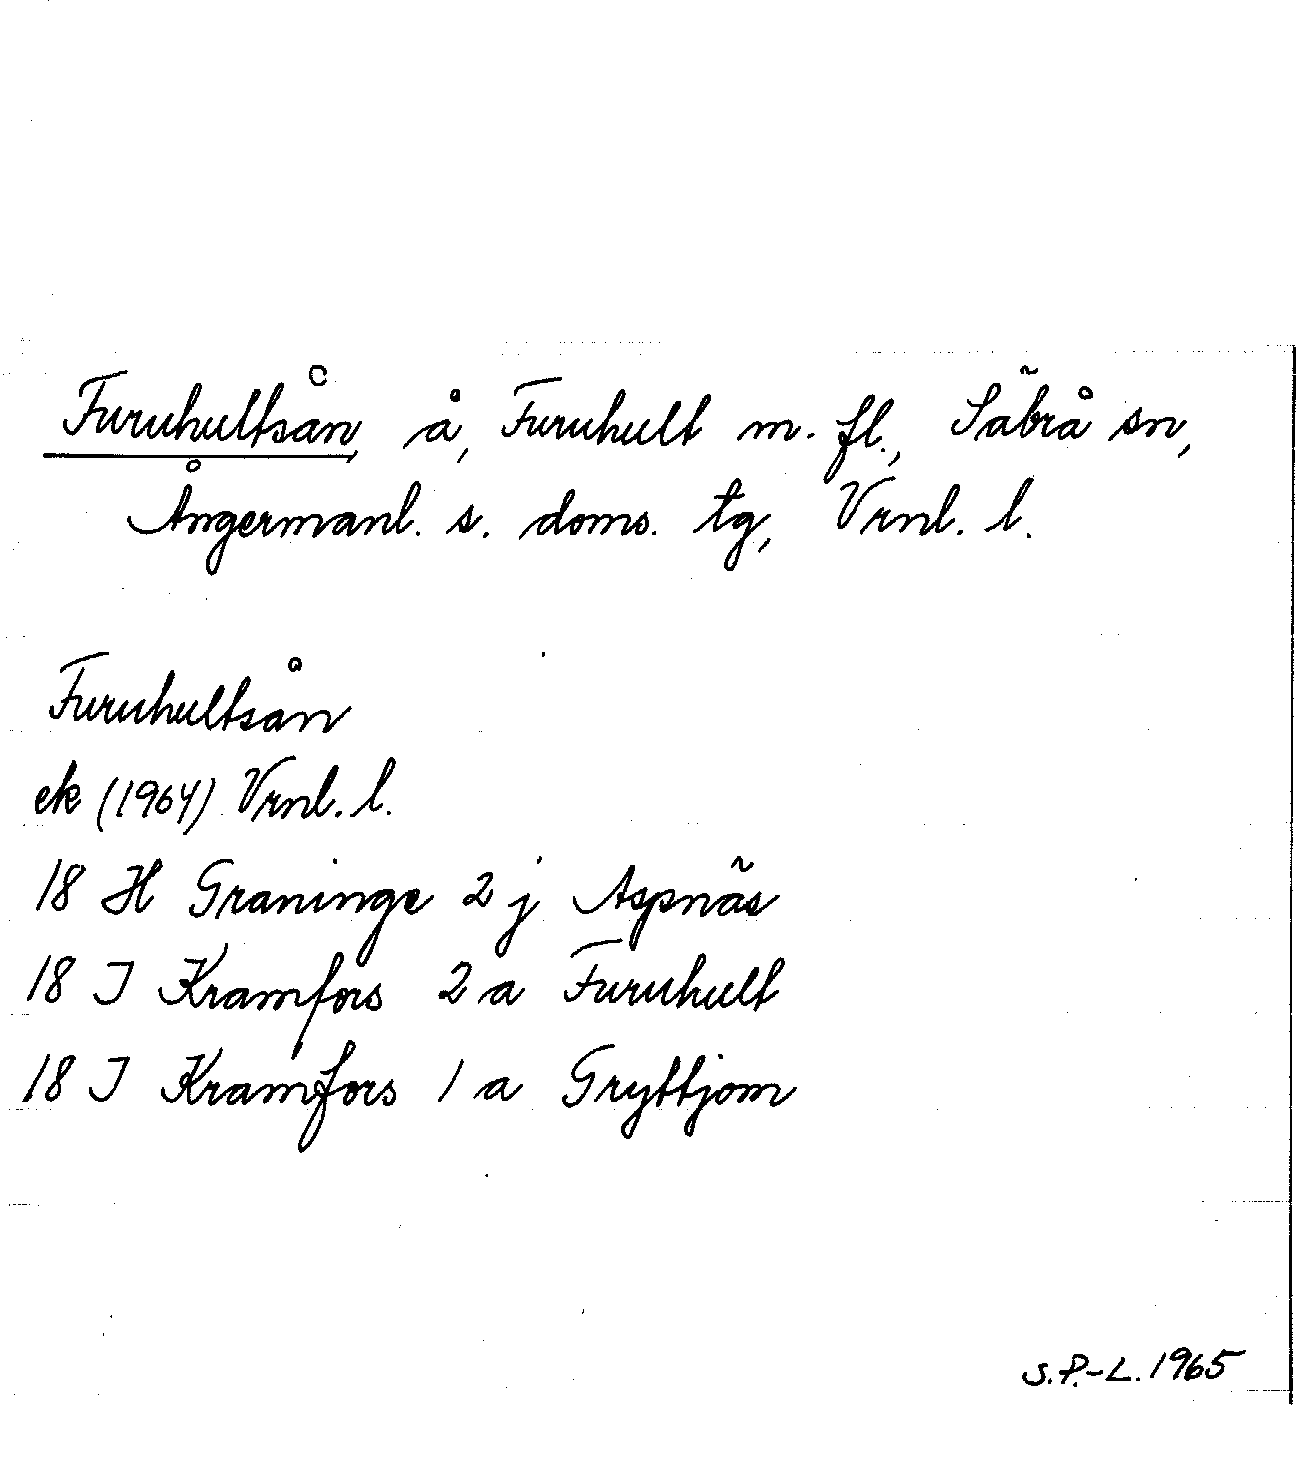 Furuhultsån, å, Furuhult m. fl., Säbrå sn,
Ångermanl. s. doms. tg, Vrnl. l.
Furuhultsån
ek (1964) Vrnl. l.
18 H Graninge 2 j Aspnäs
18 I Kramfors 2 a Furuhult
18 I Kramfors 1 a Gryttjom
S.P.-L. 1965